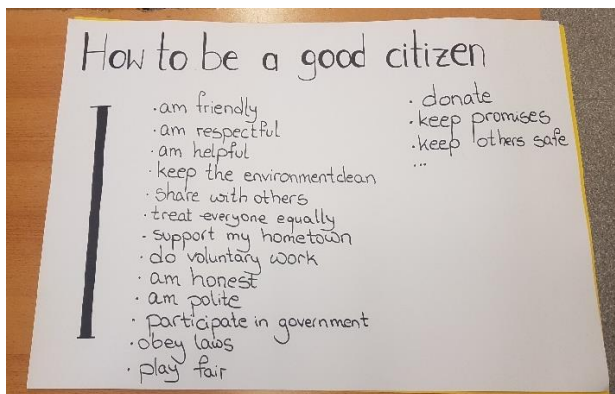 How to be a good citizen
I
· am friendly
· am respectful
· am helpful
· keep the environmentclean
· share with others
· treat everyone equally
· support my hometown
· do voluntary work
· am honest
· am polite
· participate in government
· obey laws
· play fair
· donate
· keep promises
· keep others safe
...